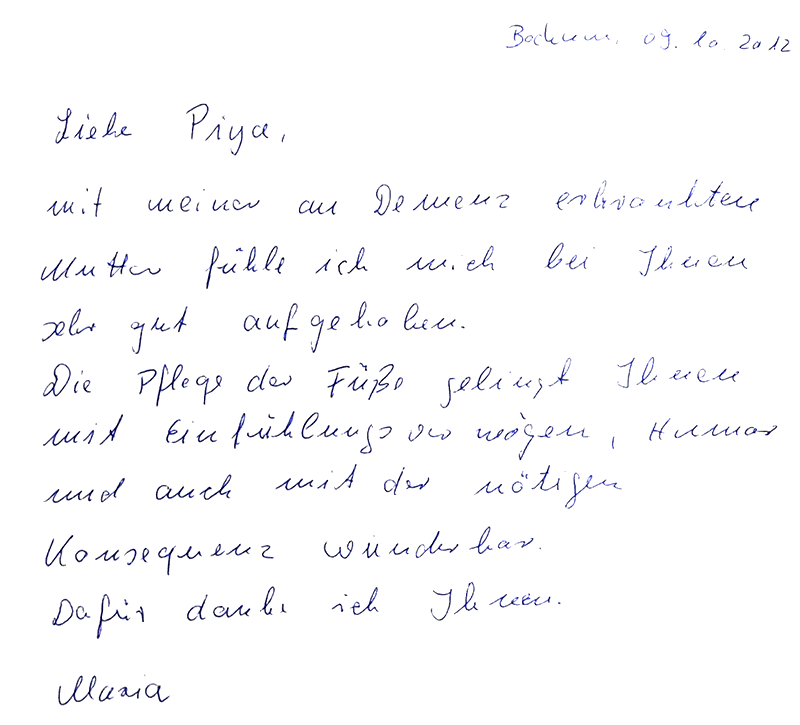 Bochum, 09.10.2012
Liebe Priya,
mit meiner an Demenz erkrankten
Mutter fühle ich mich bei Ihnen
sehr gut aufgehoben.
Die Pflege der Füße gelingt Ihnen
mit Einfühlungsvermögen, Humor
und auch mit der nötigen
Konsequenz wunderbar.
Dafür danke ich Ihnen.
Maria